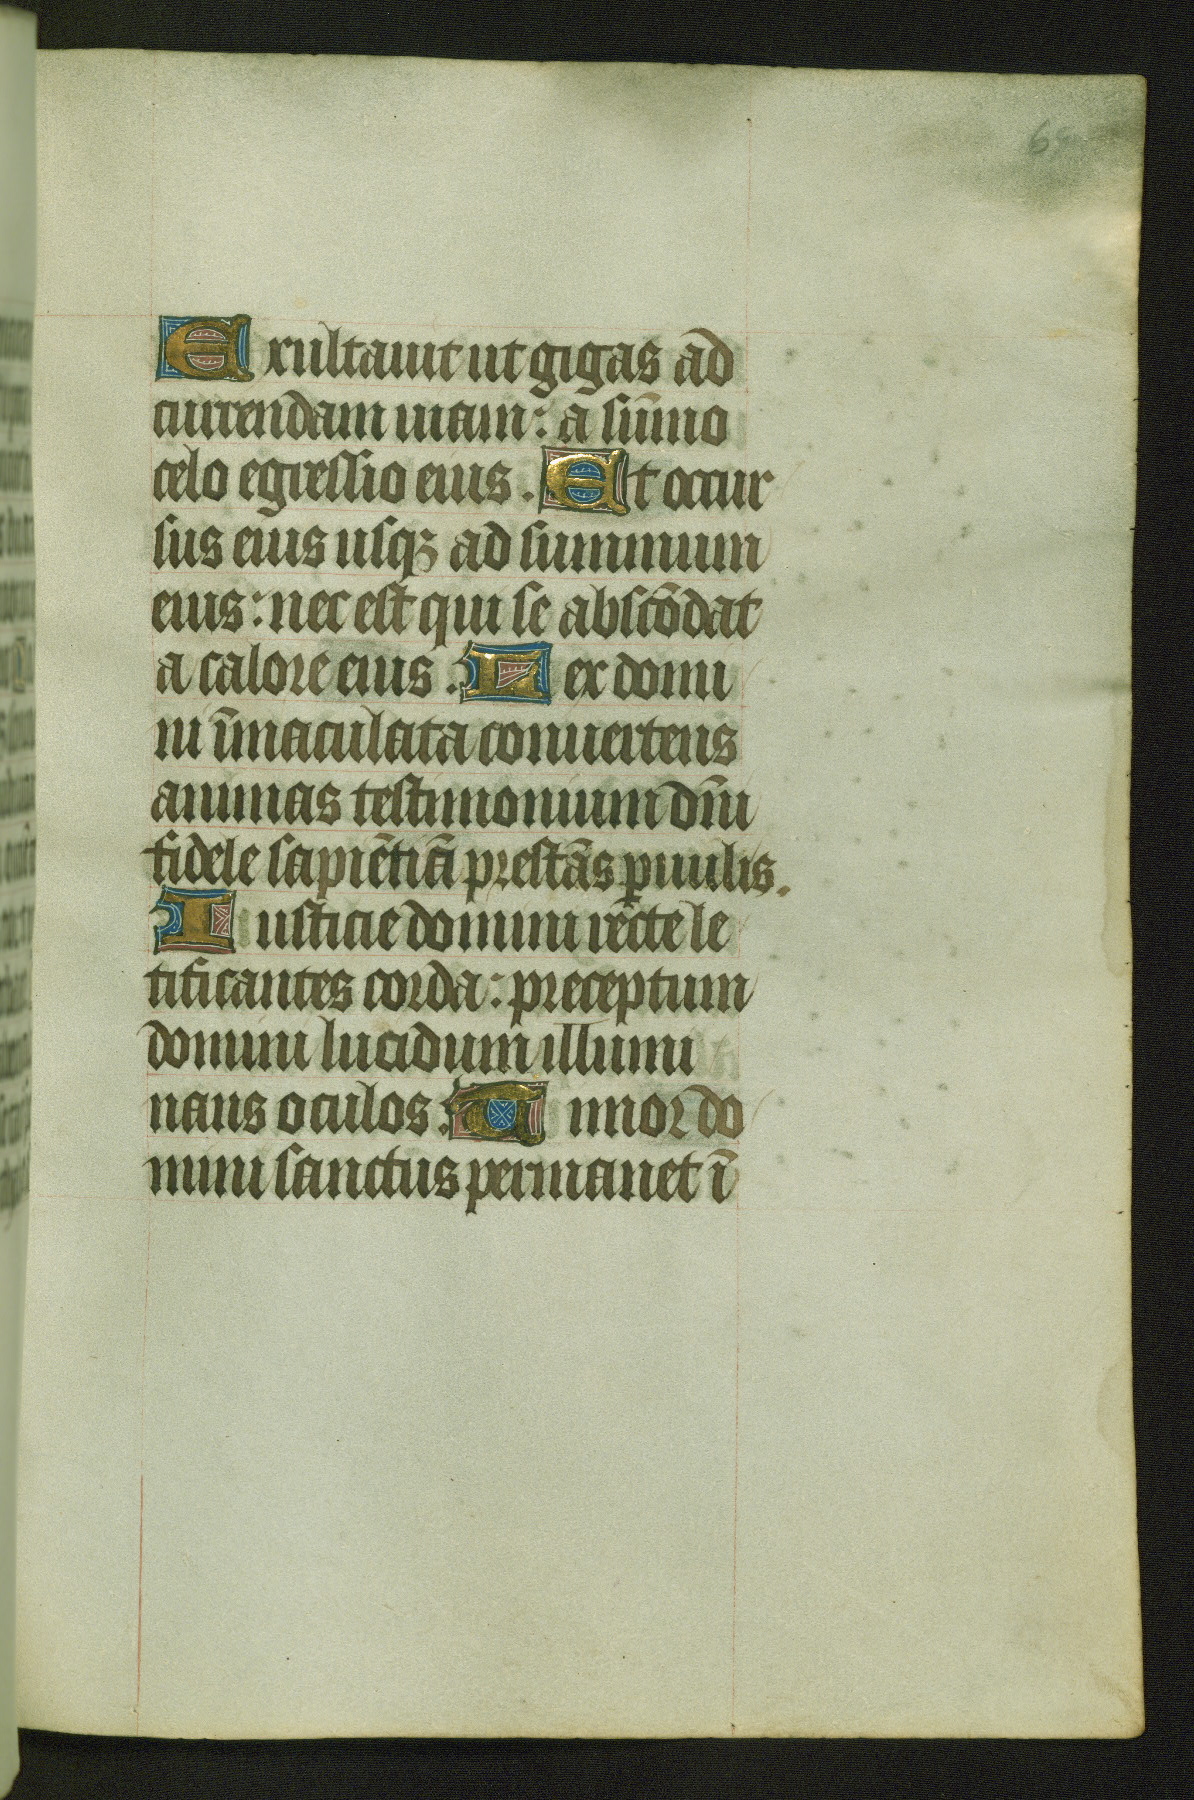 65
Exultauit ut gigas ad
currendam uiam: a sūmo
celo egressio eius. Et occur
sus eius usqꝫ ad summum
eius: nec est qui se abscōdat
a calore eius. Lex domi
ni īmaculata conuertens
animas testimonium dn̄i
fidele sapiētiā prestās ꝑuulis.
Iusticie domini recte le
tificantes corda: preceptum
domini lucidum illumi
nans oculos. Timor do
mini sanctus permanet ī